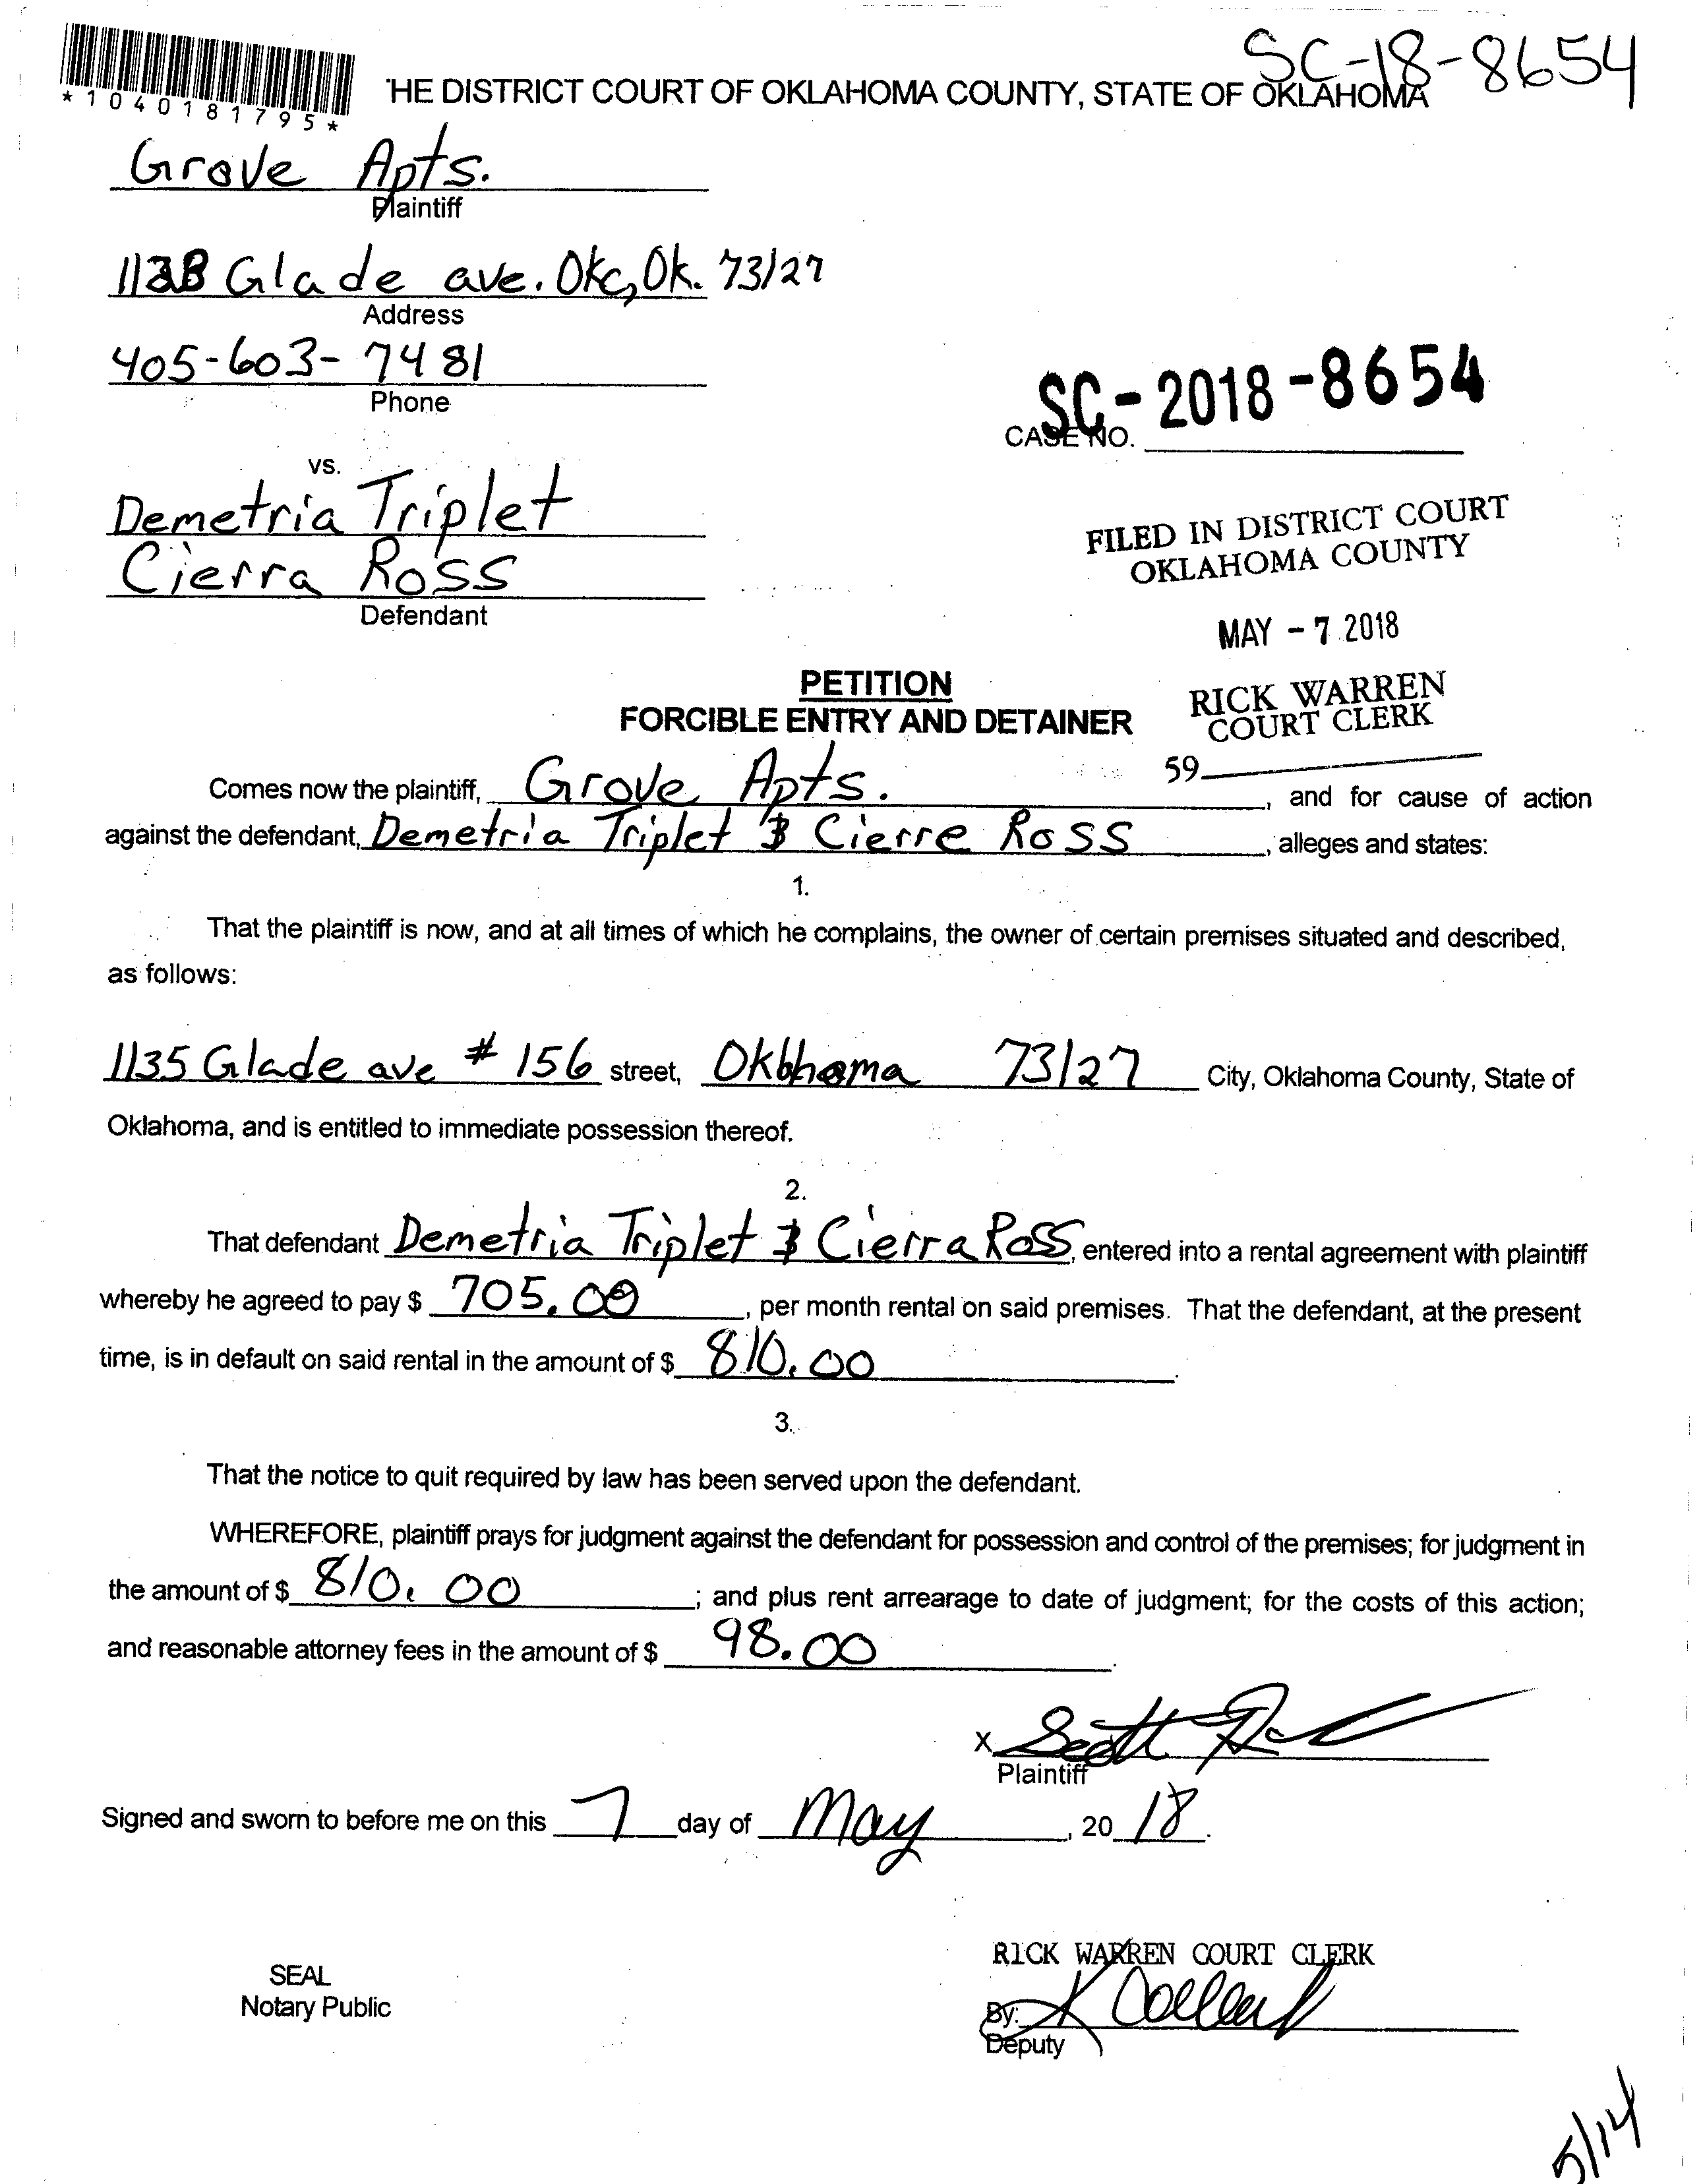 SC-18-8654
*1040181795*
'HE DISTRICT COURT OF OKLAHOMA COUNTY, STATE OF OKLAHOMA
Grove Apts.
Plaintiff
Glade ave. Okc, Ok. 73127
Address
405-603-7481
Phone
SC-2018-8654
CASE NO.
vs.
Demetria Triplet
Cierra Ross
Defendant
FILED IN DISTRICT COURT
OKLAHOMA COUNTY
MAY - 7 2018
RICK WARREN
COURT CLERK
59
PETITION
FORCIBLE ENTRY AND DETAINER
Comes now the plaintiff, Grove Apts., and for cause of action
against the defendant, Demetria Triplet & Cierre Ross, alleges and states:
1.
That the plaintiff is now, and at all times of which he complains, the owner of certain premises situated and described,
as follows:
1135 Glade ave # 156 street, Oklahoma 73127 City, Oklahoma County, State of
Oklahoma, and is entitled to immediate possession thereof.
2.
That defendant Demetria Triplet & Cierra Ross, entered into a rental agreement with plaintiff
whereby he agreed to pay $ 705.00, per month rental on said premises. That the defendant, at the present
time, is in default on said rental in the amount of $ 810.00.
3.
That the notice to quit required by law has been served upon the defendant.
WHEREFORE, plaintiff prays for judgment against the defendant for possession and control of the premises; for judgment in
the amount of $ 810.00; and plus rent arrearage to date of judgment; for the costs of this action;
and reasonable attorney fees in the amount of $ 98.00.
X Scott
Plaintiff
Signed and sworn to before me on this 7 day of May, 20 18.
SEAL
Notary Public
RICK WARREN COURT CLERK
By: K
Deputy
5/14